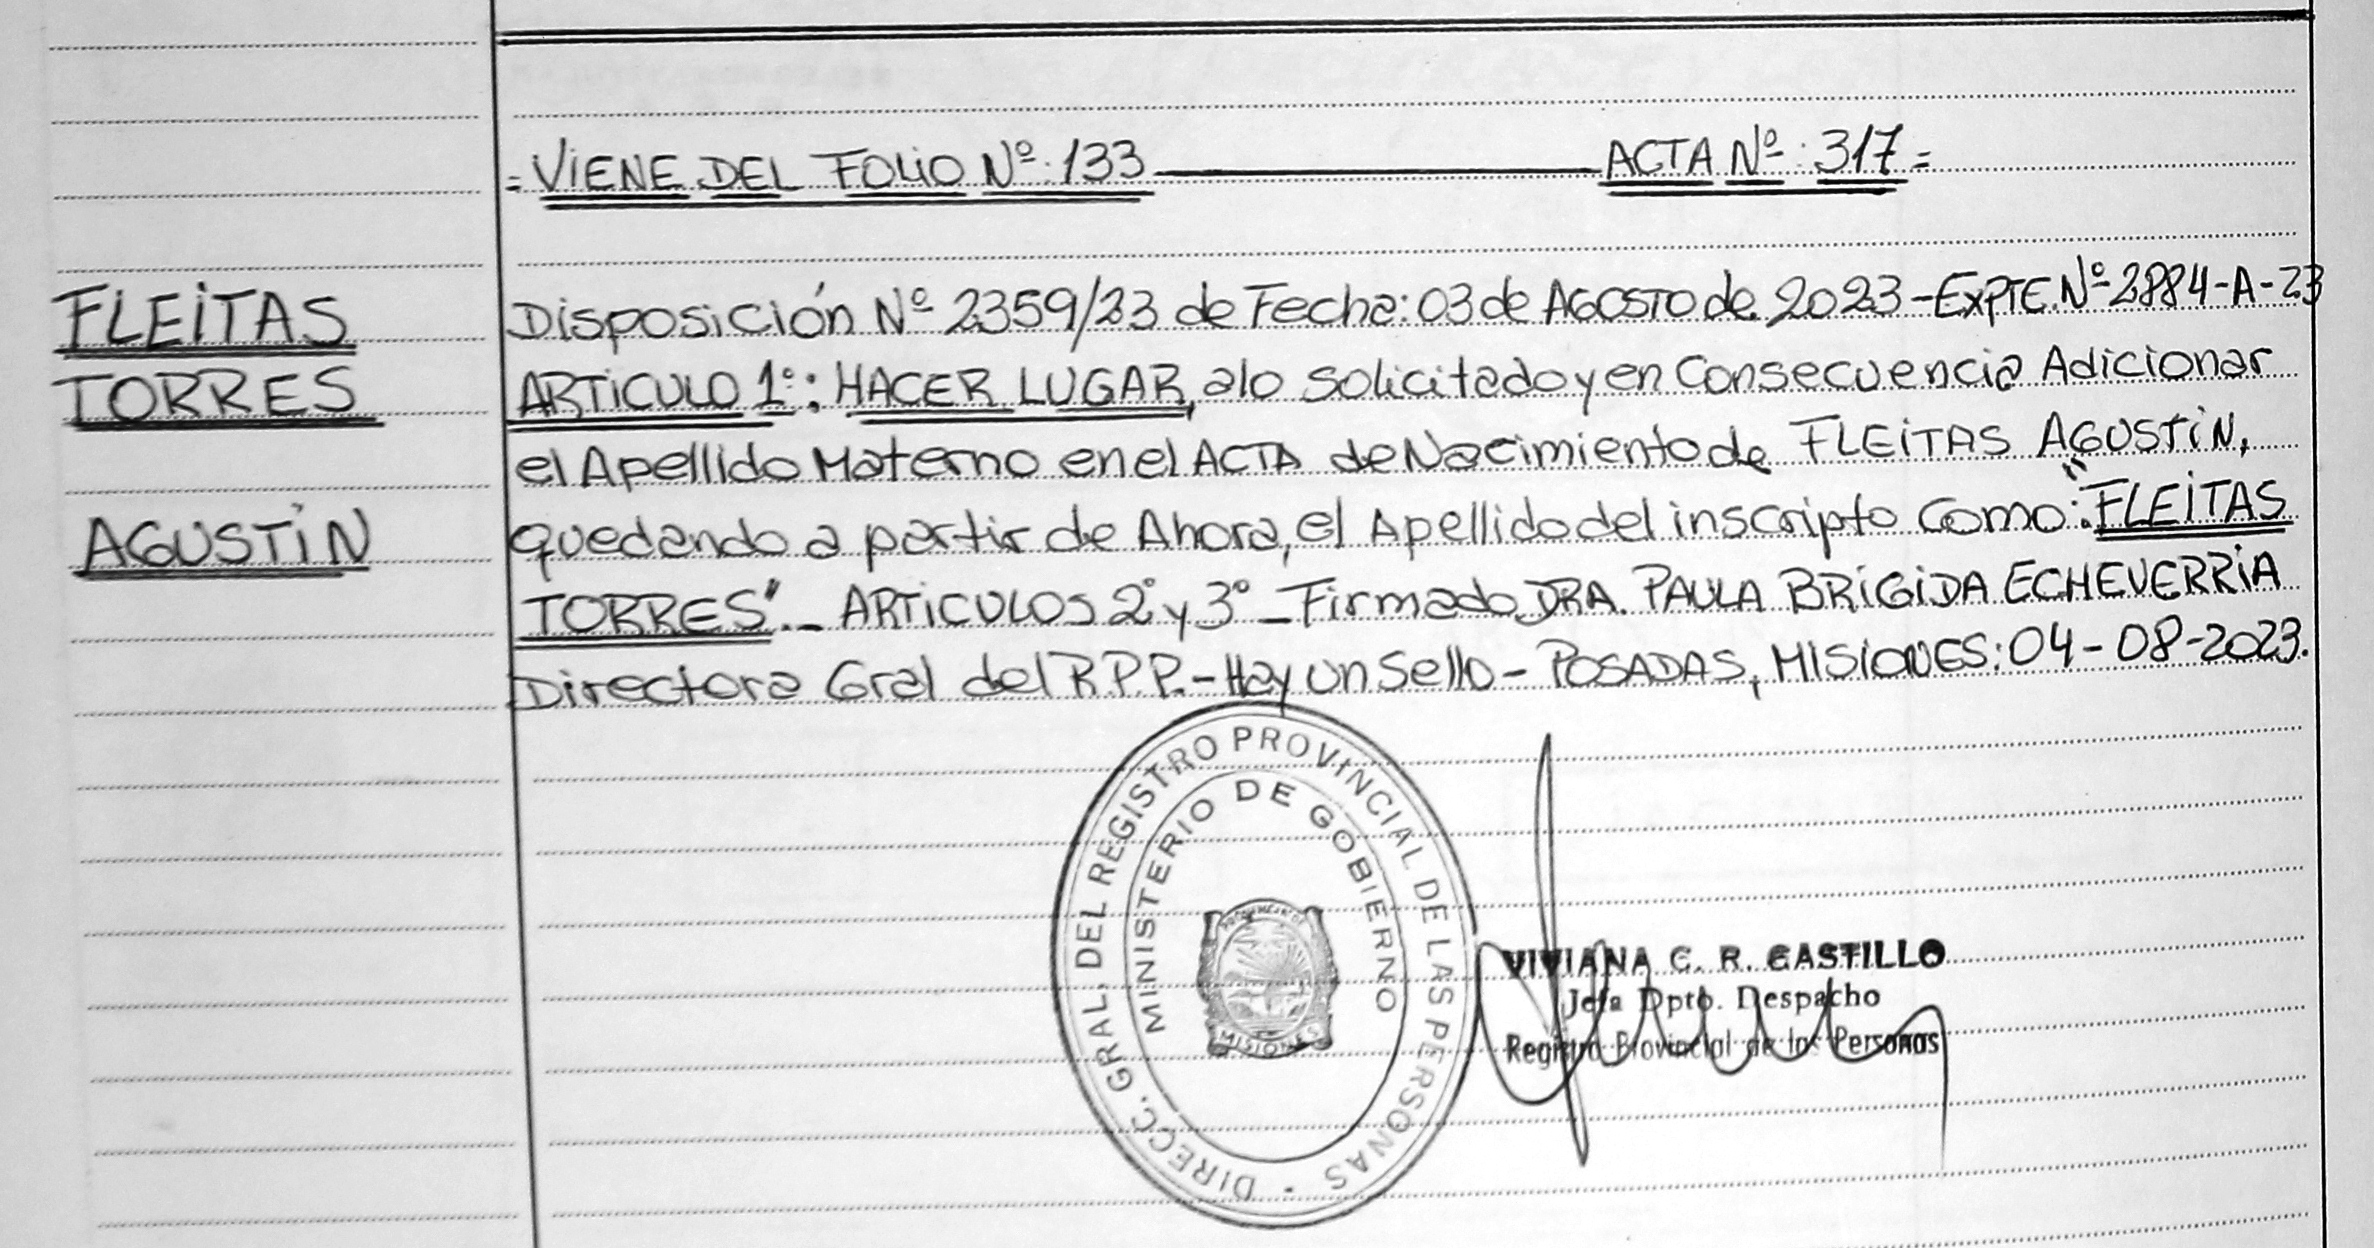 = VIENE DEL FOLIO Nº: 133 ACTA Nº: 317 =
FLEITAS
TORRES
AGUSTIN
Disposición Nº 2359/23 de Fecha: 03 de AGOSTO de 2023 - EXPTE. Nº 2884-A-23
ARTICULO 1º: HACER LUGAR, a lo solicitado y en Consecuencia Adicionar
el Apellido Materno en el ACTA de Nacimiento de FLEITAS AGUSTIN,
quedando a partir de Ahora, el Apellido del inscripto Como: "FLEITAS
TORRES". _ ARTICULOS 2º y 3º _ Firmado DRA. PAULA BRIGIDA ECHEVERRIA
Directora Gral del R.P.P. - Hay un Sello - POSADAS, MISIONES: 04 - 08 - 2023.
DIRECC. GRAL. DEL REGISTRO PROVINCIAL DE LAS PERSONAS
MINISTERIO DE GOBIERNO
PROVINCIA DE
MISIONES
VIVIANA C. R. CASTILLO
Jefa Dpto. Despacho
Registro Provincial de las Personas